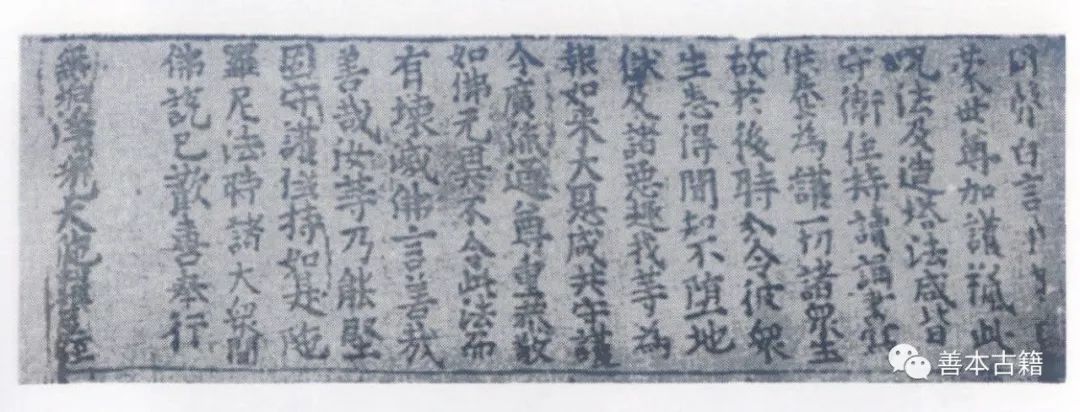 白言
蒙世尊加護授此
呪法及造塔法咸皆
守衛住持讀誦書寫
供養為護一切諸眾生
故於後時分令彼眾
生悉得聞知不墮地
獄及諸惡趣我等為
報如来大恩咸共守護
令廣流通尊重恭敬
如佛无異不令此法而
有壞滅佛言善哉
善哉汝等乃能堅
固守護住持如是陁
羅尼法時諸大眾聞
佛說已歡喜奉行
無垢淨光大陁羅尼經
善本古籍